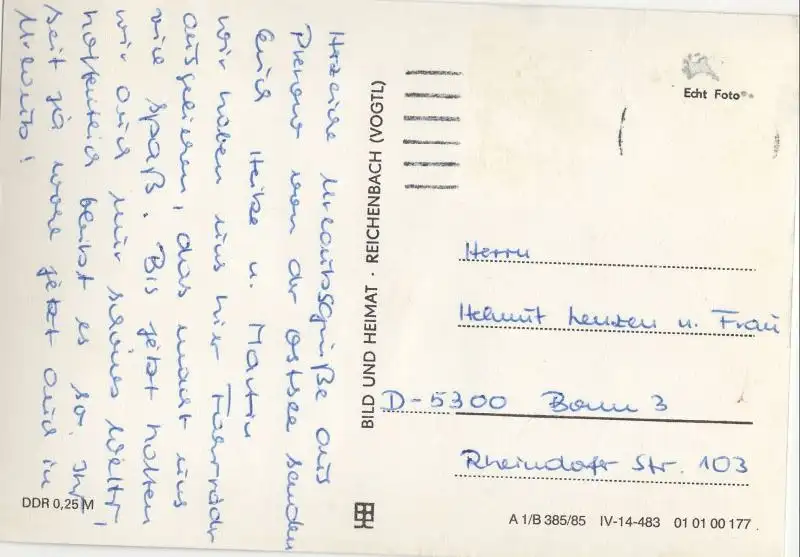 Herzliche Urlaubsgrüße aus
Prerow von der Ostsee senden
Euch Heike u. Martin
wir haben uns hier Fahrräder
ausgeliehen, das macht uns
viel Spaß. Bis jetzt hatten
wir auch nur schönes Wetter,
hoffentlich bleibt es so. Ihr
seit ja wohl jetzt auch in
Urlaub!
DDR 0,25 M
BILD UND HEIMAT · REICHENBACH (VOGTL)
Echt Foto
Herrn
Helmut Lenzen u. Frau
D-5300 Bonn 3
Rheindorfer Str. 103
A 1/B 385/85 IV-14-483 01 01 00 177